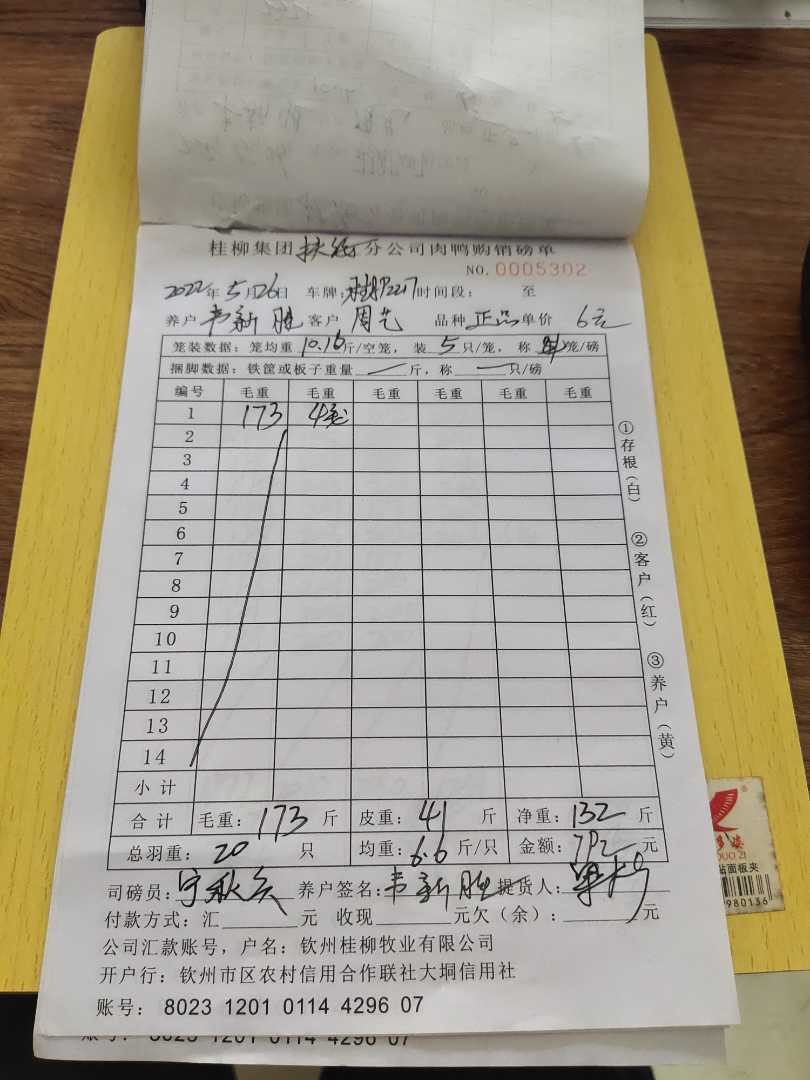 桂柳集团扶绥分公司肉鸭购销磅单
NO. 0005302
2022年5月26日 车牌: 217 时间段: 至
养户 韦新胜 客户 周艺 品种 正品 单价 6元
笼装数据: 笼均重 10.16 斤/空笼, 装 5 只/笼, 称 笼/磅
捆脚数据: 铁筐或板子重量 一 斤, 称 一 只/磅
编号 毛重 毛重 毛重 毛重 毛重 毛重
1 173 4
2
3
4
5
6
7
8
9
10
11
12
13
14
小计
合计 毛重: 173 斤 皮重: 41 斤 净重: 132 斤
总羽重: 20 只 均重: 6.6 斤/只 金额: 792 元
司磅员: 养户签名: 韦新胜 提货人:
付款方式: 汇 元 收现 元欠(余): 元
公司汇款账号, 户名: 钦州桂柳牧业有限公司
开户行: 钦州市区农村信用合作联社大垌信用社
账号: 8023 1201 0114 4296 07
账号: 8023 1201 0114 4296 07
①存根(白)
②客户(红)
③养户(黄)
DUO ZI
站面板夹
980136